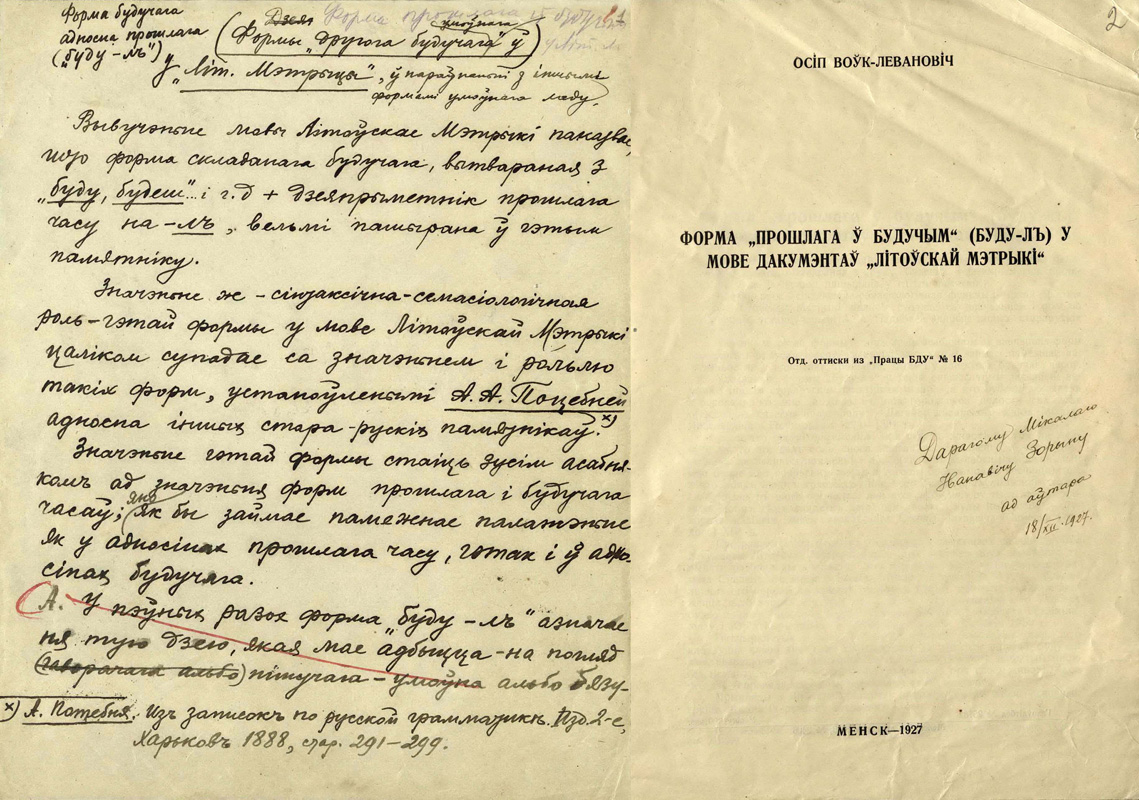 Форма будучага
адносна прошлага
("буду-лъ") у
Дзея Форма прошлага
(Формы "другога будучага" ў)
умоўнага
"Літ. Мэтрыцы", ў параўнаньні з іншымі
формамі умоўнага ладу.
Вывучэньне мовы Літоўскае Мэтрыкі паказвае,
што форма складанага будучага, вытвараная з
"буду, будеш"... і г.д + дзеяпрыметнік прошлага
часу на -лъ, вельмі пашырана ў гэтым
памятніку.
Значэньне ж - сінтаксічна-семасіологічная
роль - гэтай формы у мове Літоўскай Мэтрыкі
цаліком супадае са значэньнем і рольлю
такіх форм, устаноўленымі А.А. Потебней
адносна іншых стара-рускіх памятнікаў. х)
Значэньне гэтай формы стаіць зусім асабня-
комъ ад значэньня форм прошлага і будучага
часаў; яно як бы займае памежнае палажэньне
як у адносінах прошлага часу, гэтак і ў адно-
сінах будучага.
А. У пэўных разох форма "буду -лъ" азначае
ня тую дзею, якая мае адбыцца - на погляд
(гаворачага альбо) пішучага - умоўна альбо бязу-
х) А. Потебня. Изъ записокъ по русской грамматикѣ. Изд. 2-е,
Харьковъ 1888, стр. 291-299.
2
ОСІП ВОЎК-ЛЕВАНОВІЧ
ФОРМА „ПРОШЛАГА Ў БУДУЧЫМ“ (БУДУ-ЛЪ) У
МОВЕ ДАКУМЭНТАЎ „ЛІТОЎСКАЙ МЭТРЫКІ“
Отд. оттиски из „Працы БДУ“ № 16
Дарагому Мікалаю
Зорыну
ад аўтара
18/XII-1927.
МЕНСК—1927